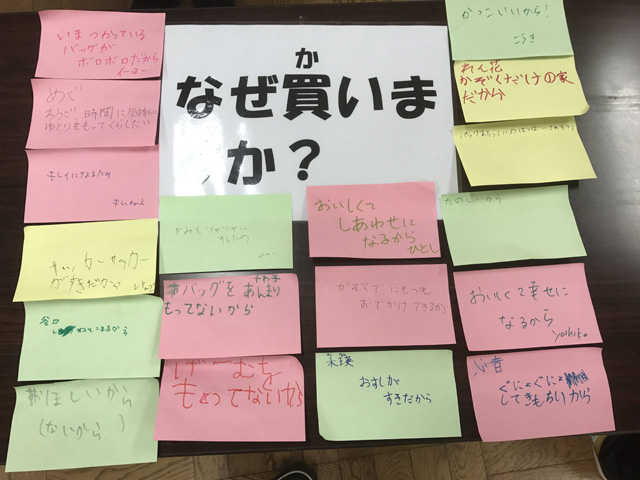 か
なぜ買いま
か？
いまつかっている
バッグが
ボロボロだから
イーヨー
めぐ
ろうご、時間に気持ち
ゆとりをもってくらしたい
キレイになるため
サッカーサッカー
がすきだから
谷口
ねむくなるから
おほしいから
(ないから)
かみを
バッグをあんまり
もってないから
げーむを
もってないから
おいしくて
しあわせに
なるから
ひとし
かぞくで にもつも
おでかけできるから
おすしが
すきだから
かっこいいから！
こうき
れん花
かぞくだけの家
だから
たのしいから
おいしくて幸せに
なるから
心音
ぐにゃぐにゃ
してきもちいから